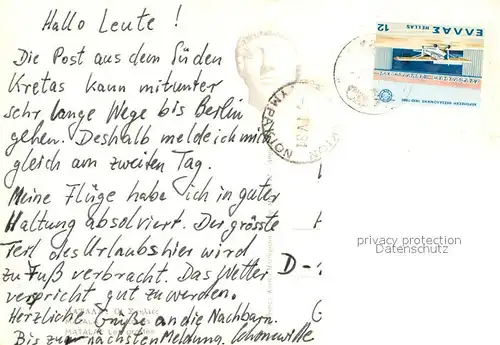 Hallo Leute !
Die Post aus dem Süden
Kretas kann mitunter
sehr lange Wege bis Berlin
gehen. Deshalb melde ich mich
gleich am zweiten Tag.
Meine Flüge habe ich in guter
Haltung absolviert. Der grösste
Teil des Urlaubs hier wird
zu Fuß verbracht. Das Wetter
verspricht gut zu werden.
Herzliche Grüße an die Nachbarn.
Bis zur nächsten Meldung.
ΕΛΛΑΣ
12 HELLAS
IV.81
D-
MATALA
privacy protection
Datenschutz